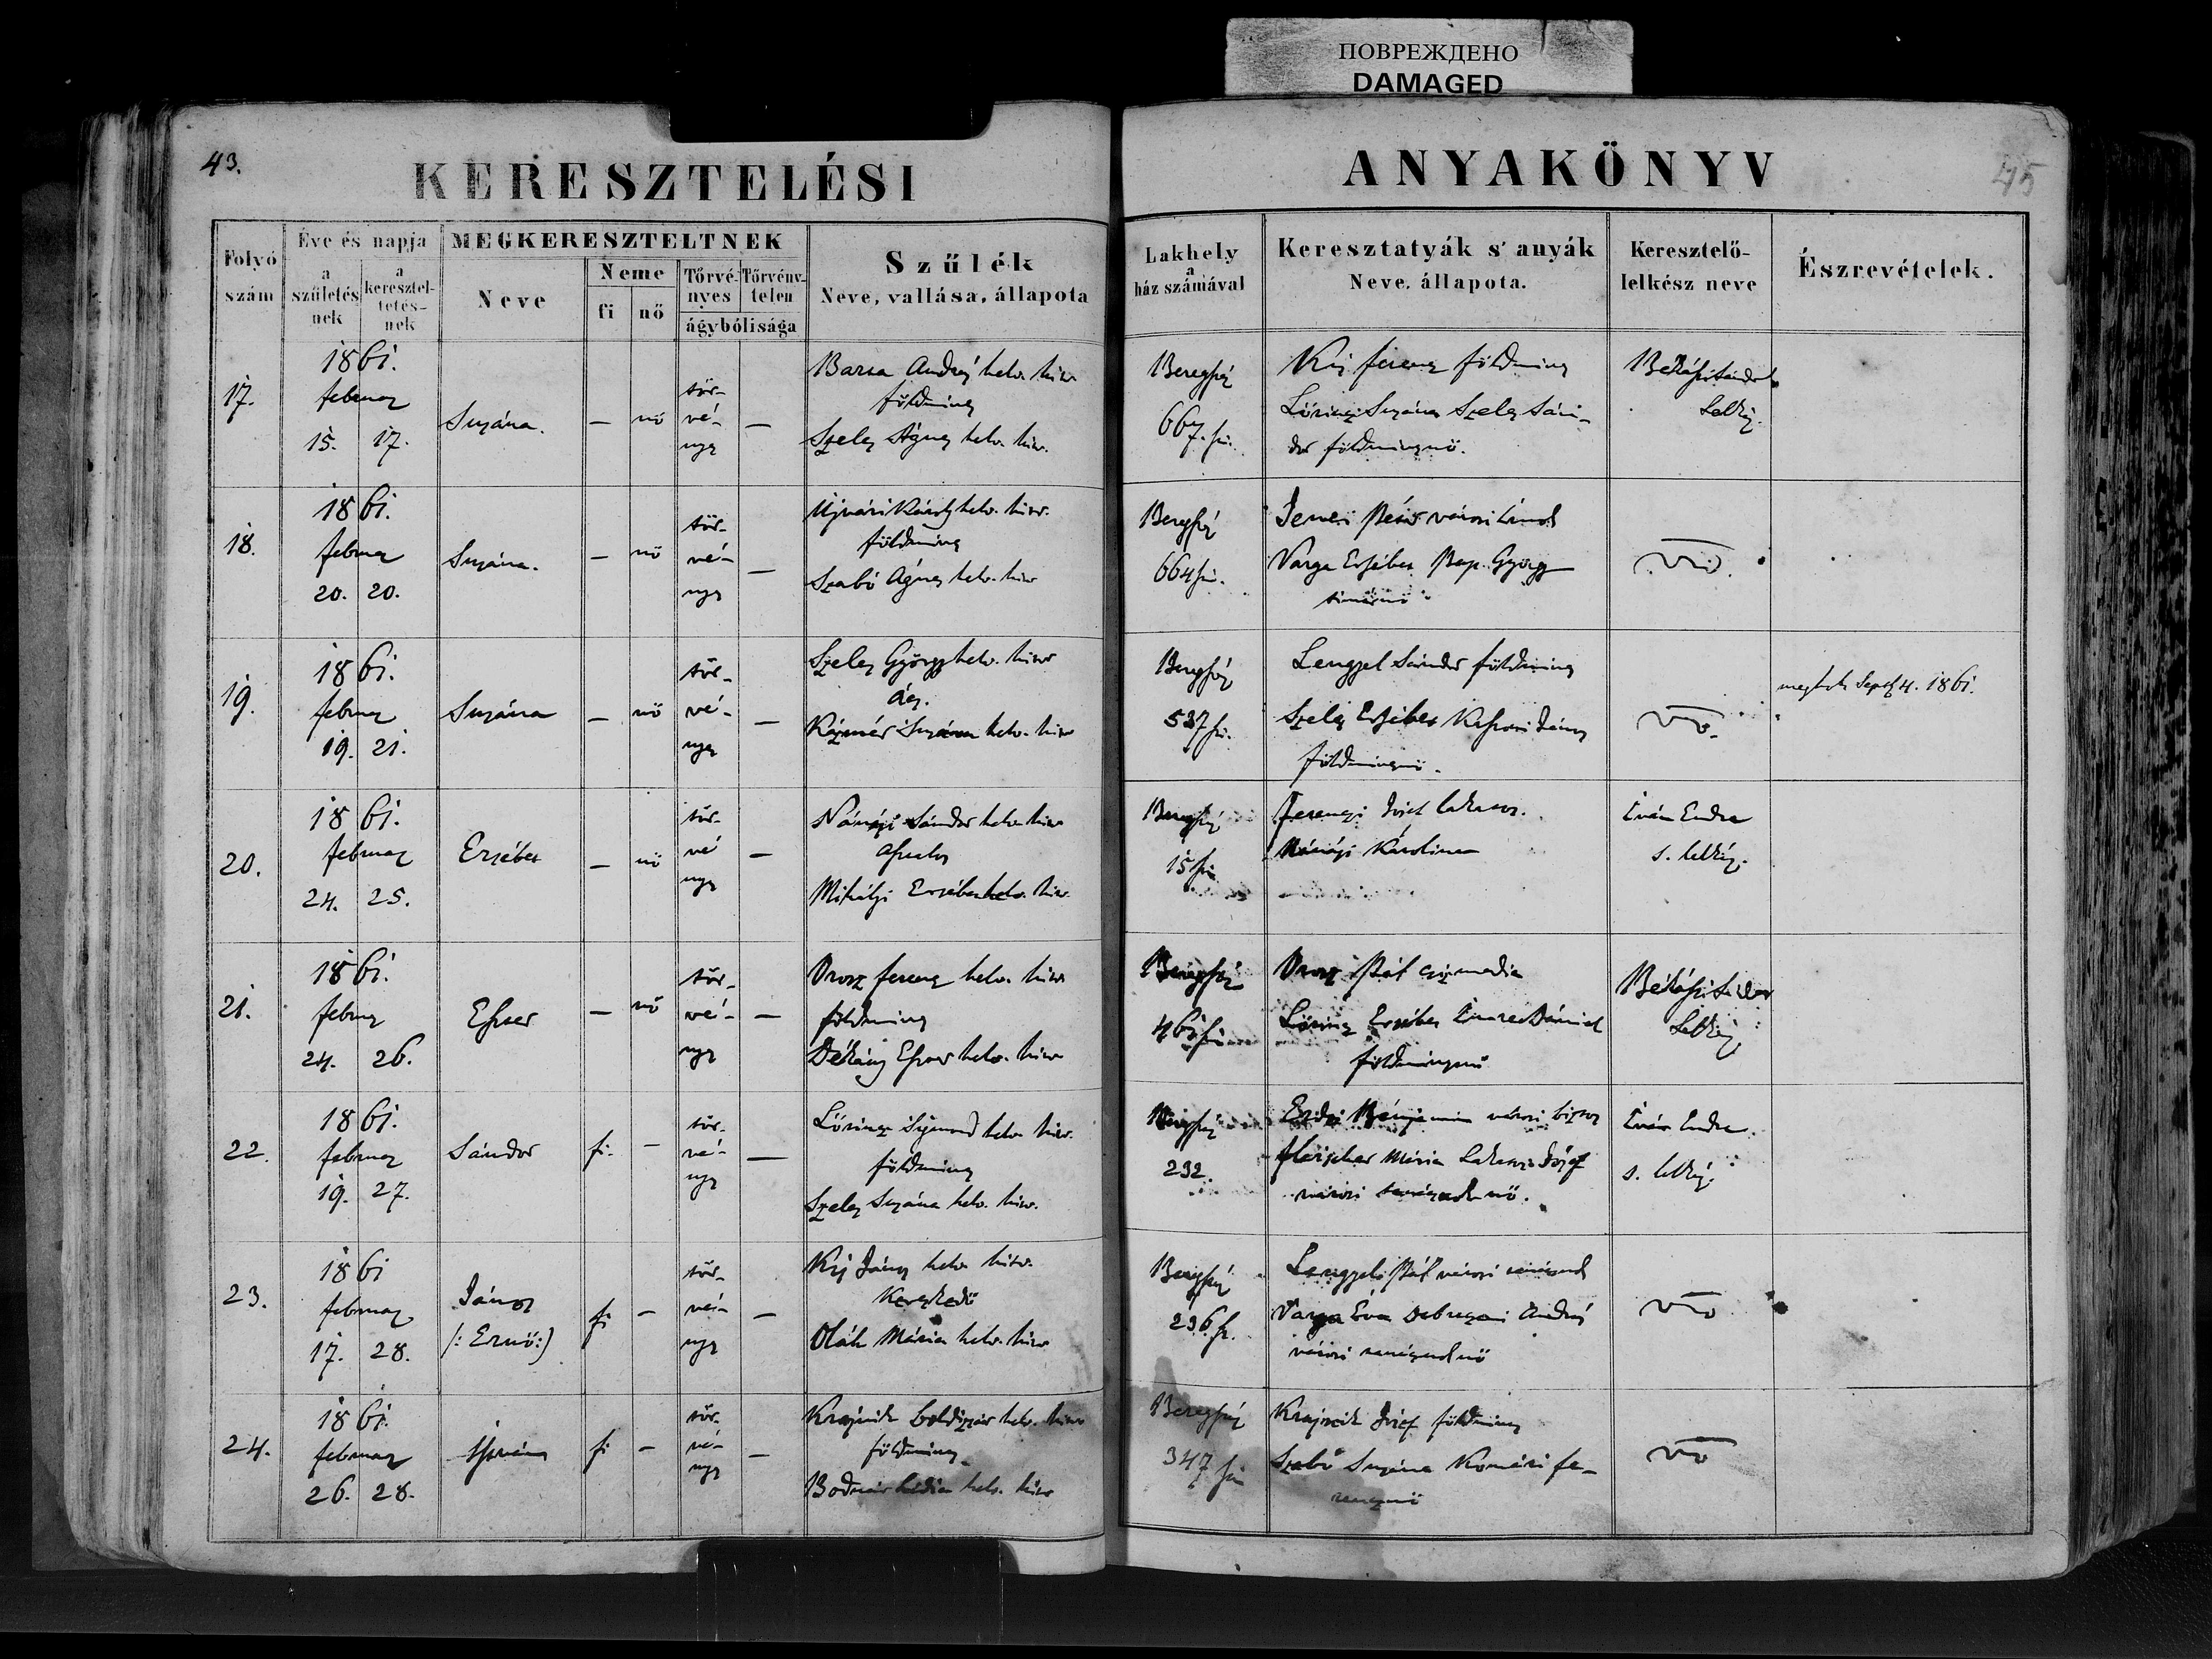 ПОВРЕЖДЕНО
DAMAGED
43.
KERESZTELÉSI
ANYAKÖNYV
45
Folyó szám
Éve és napja
a születésnek
a keresztel-tetés-nek
MEGKERESZTELTNEK
Neve
Neme
fi
nő
Törvé-nyes
Törvény-telen
ágybólisága
Szűlék
Neve, vallása, állapota
Lakhely
a
ház számával
Keresztatyák s' anyák
Neve, állapota.
Keresztelő-
lelkész neve
Észrevételek.
17.
1861.
februar
15. 17.
Suzána.
—
nő
tör-
vé-
nyes
—
Barta András helv. hitv.
földmives
Szeles Ágnes helv. hitv.
667. sz.
Kis ferencz földmives
Suzána Szeles Sán-
dor földmivesnő.
18.
1861.
februar
20. 20.
Suzána.
—
nő
tör-
vé-
nyes
—
Ujvári Károly helv. hitv.
földmives
Szabó Ágnes helv. hitv
664 sz.
városi
Varga Erzsébet Pap György
19.
1861.
februar
19. 21.
Suzána
—
nő
tör-
vé-
nyes
—
Szeles György helv. hitv
ács.
Kázmér Suzána helv. hitv
537 sz.
Lengyel Sándor földmives
Szeles Erzsébet János
földmivesnő.
meghalt Sept 4. 1861.
20.
1861.
februar
24. 25.
Erzsébet
—
nő
tör-
vé
nyes
—
Sándor helv. hitv
asztalos
Mihályi Erzsébet helv. hitv.
15 sz
Ferenczi Josef lakatos.
Karolina
Iván Endre
s. lelkész.
21.
1861.
februar
24. 26.
Eszter
—
nő
tör-
vé-
nyes
—
Orosz ferencz helv. hitv
földmives
Dékány Eszter helv. hitv
461 sz
Orosz Pál csizmadia
Lőrincz Erzsébet Imre Dániel
földmivesnő
22.
1861.
februar
19. 27.
Sándor
fi.
—
tör-
vé-
nyes
—
Lőrincz Sigmond helv. hitv.
földmives
Szeles Suzána helv. hitv.
232.
Benjamin városi
fleischer Mária József
városi nő.
Iván Endre
s. lelkész.
23.
1861
februar
17. 28.
János
/: Ernő :/
fi
—
tör-
vé-
nyes
—
Kis János helv. hitv.
Kereskedő
Oláh Mária helv. hitv
236 sz.
Lengyel Pál városi
Varga Éva Debreczeni András
városi nő
24.
1861.
februar
26. 28.
István
fi
—
tör-
vé-
nyes
—
Krajnik Boldizsár helv. hitv
földmives
Bodnár Lidia helv. hitv
347 sz
Krajnik Josef földmives
Szabó Suzána Komári fe-
rencznő